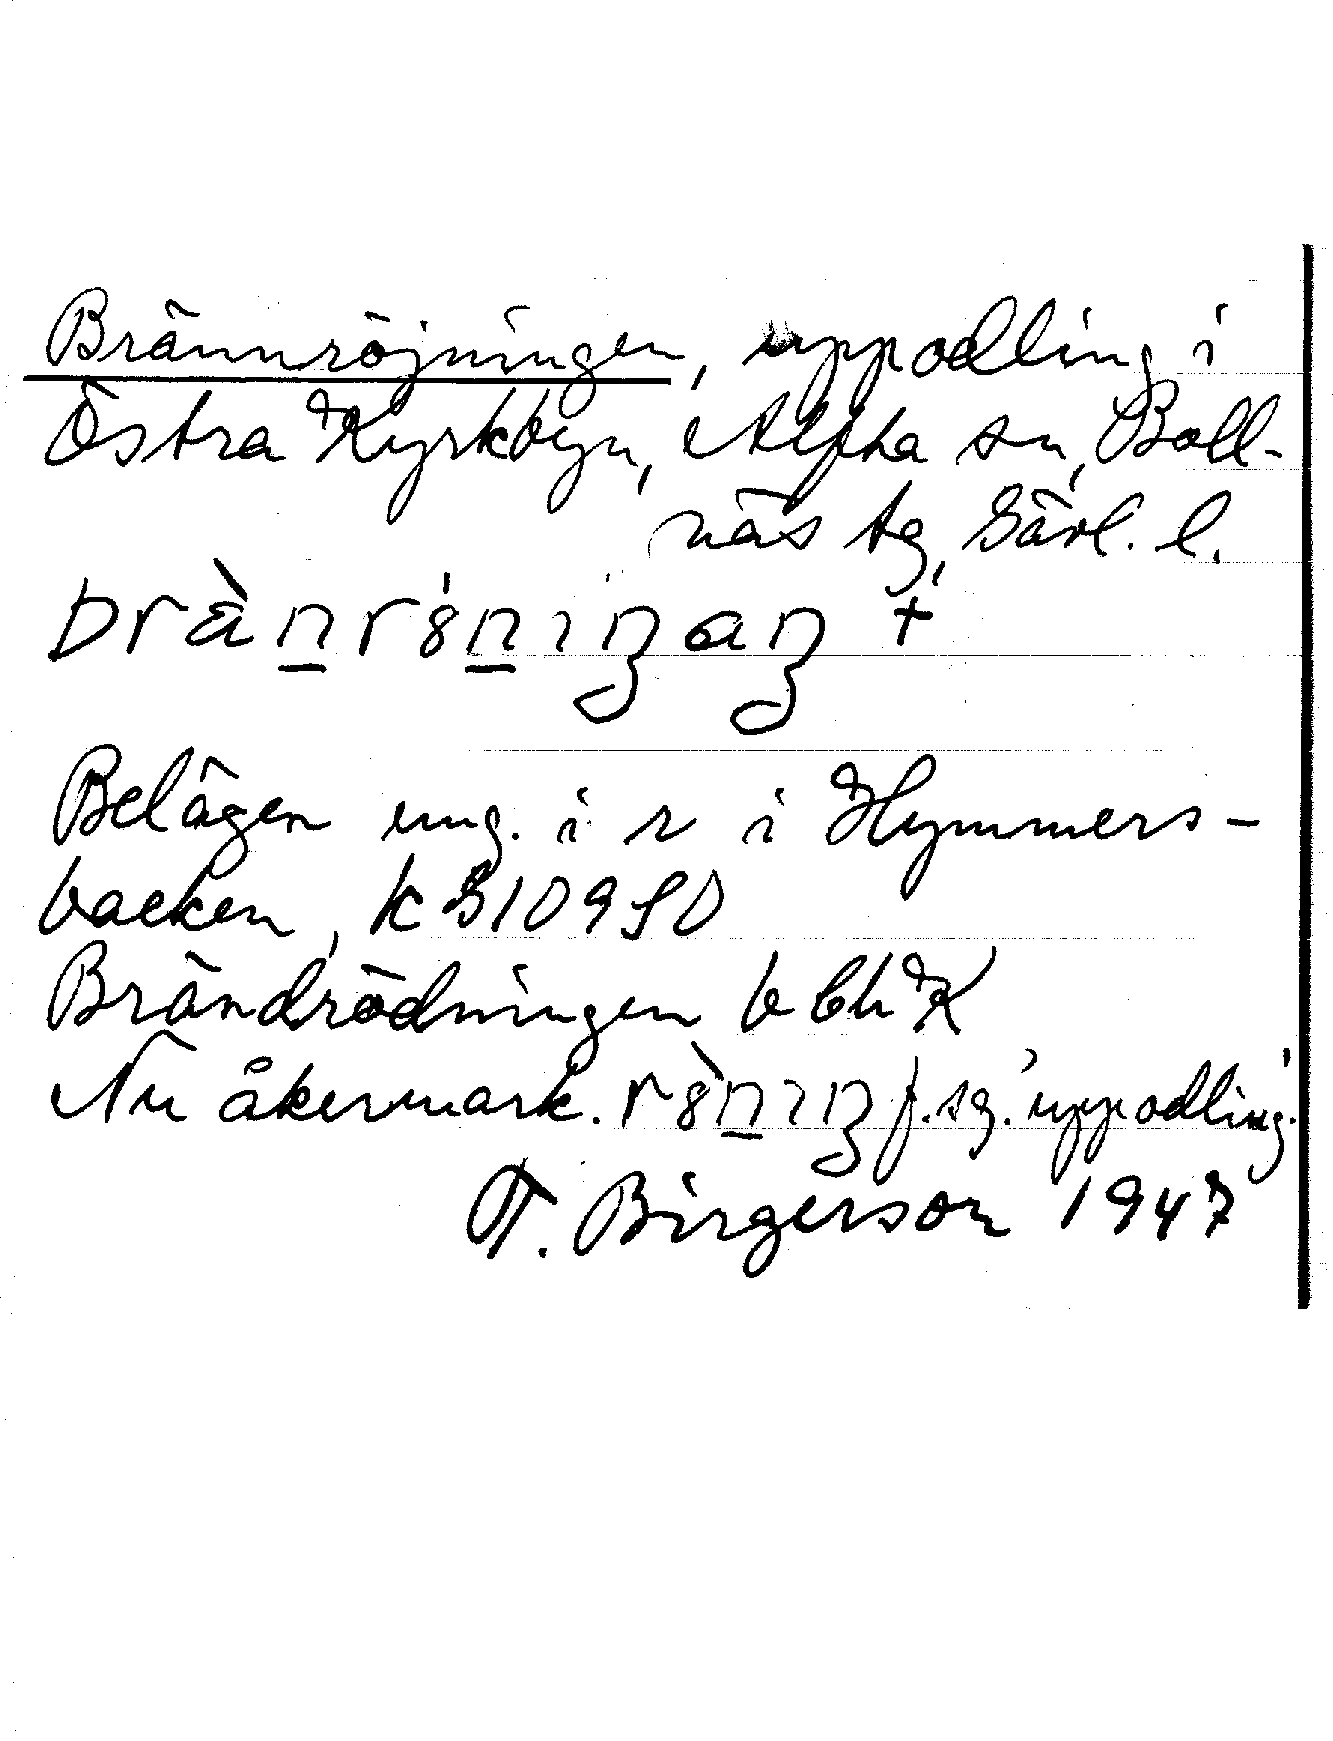 Brännröjningen, uppodling i
Östra Kyrkbyn, Alfta sn, Boll-
näs tg, Gävl. l.
Belägen ung. i r i Hymmers-
backen, k G10950
Brändrödningen b bl K
Nu åkermark. f. sg. 'uppodling'.
T. Birgerson 1947